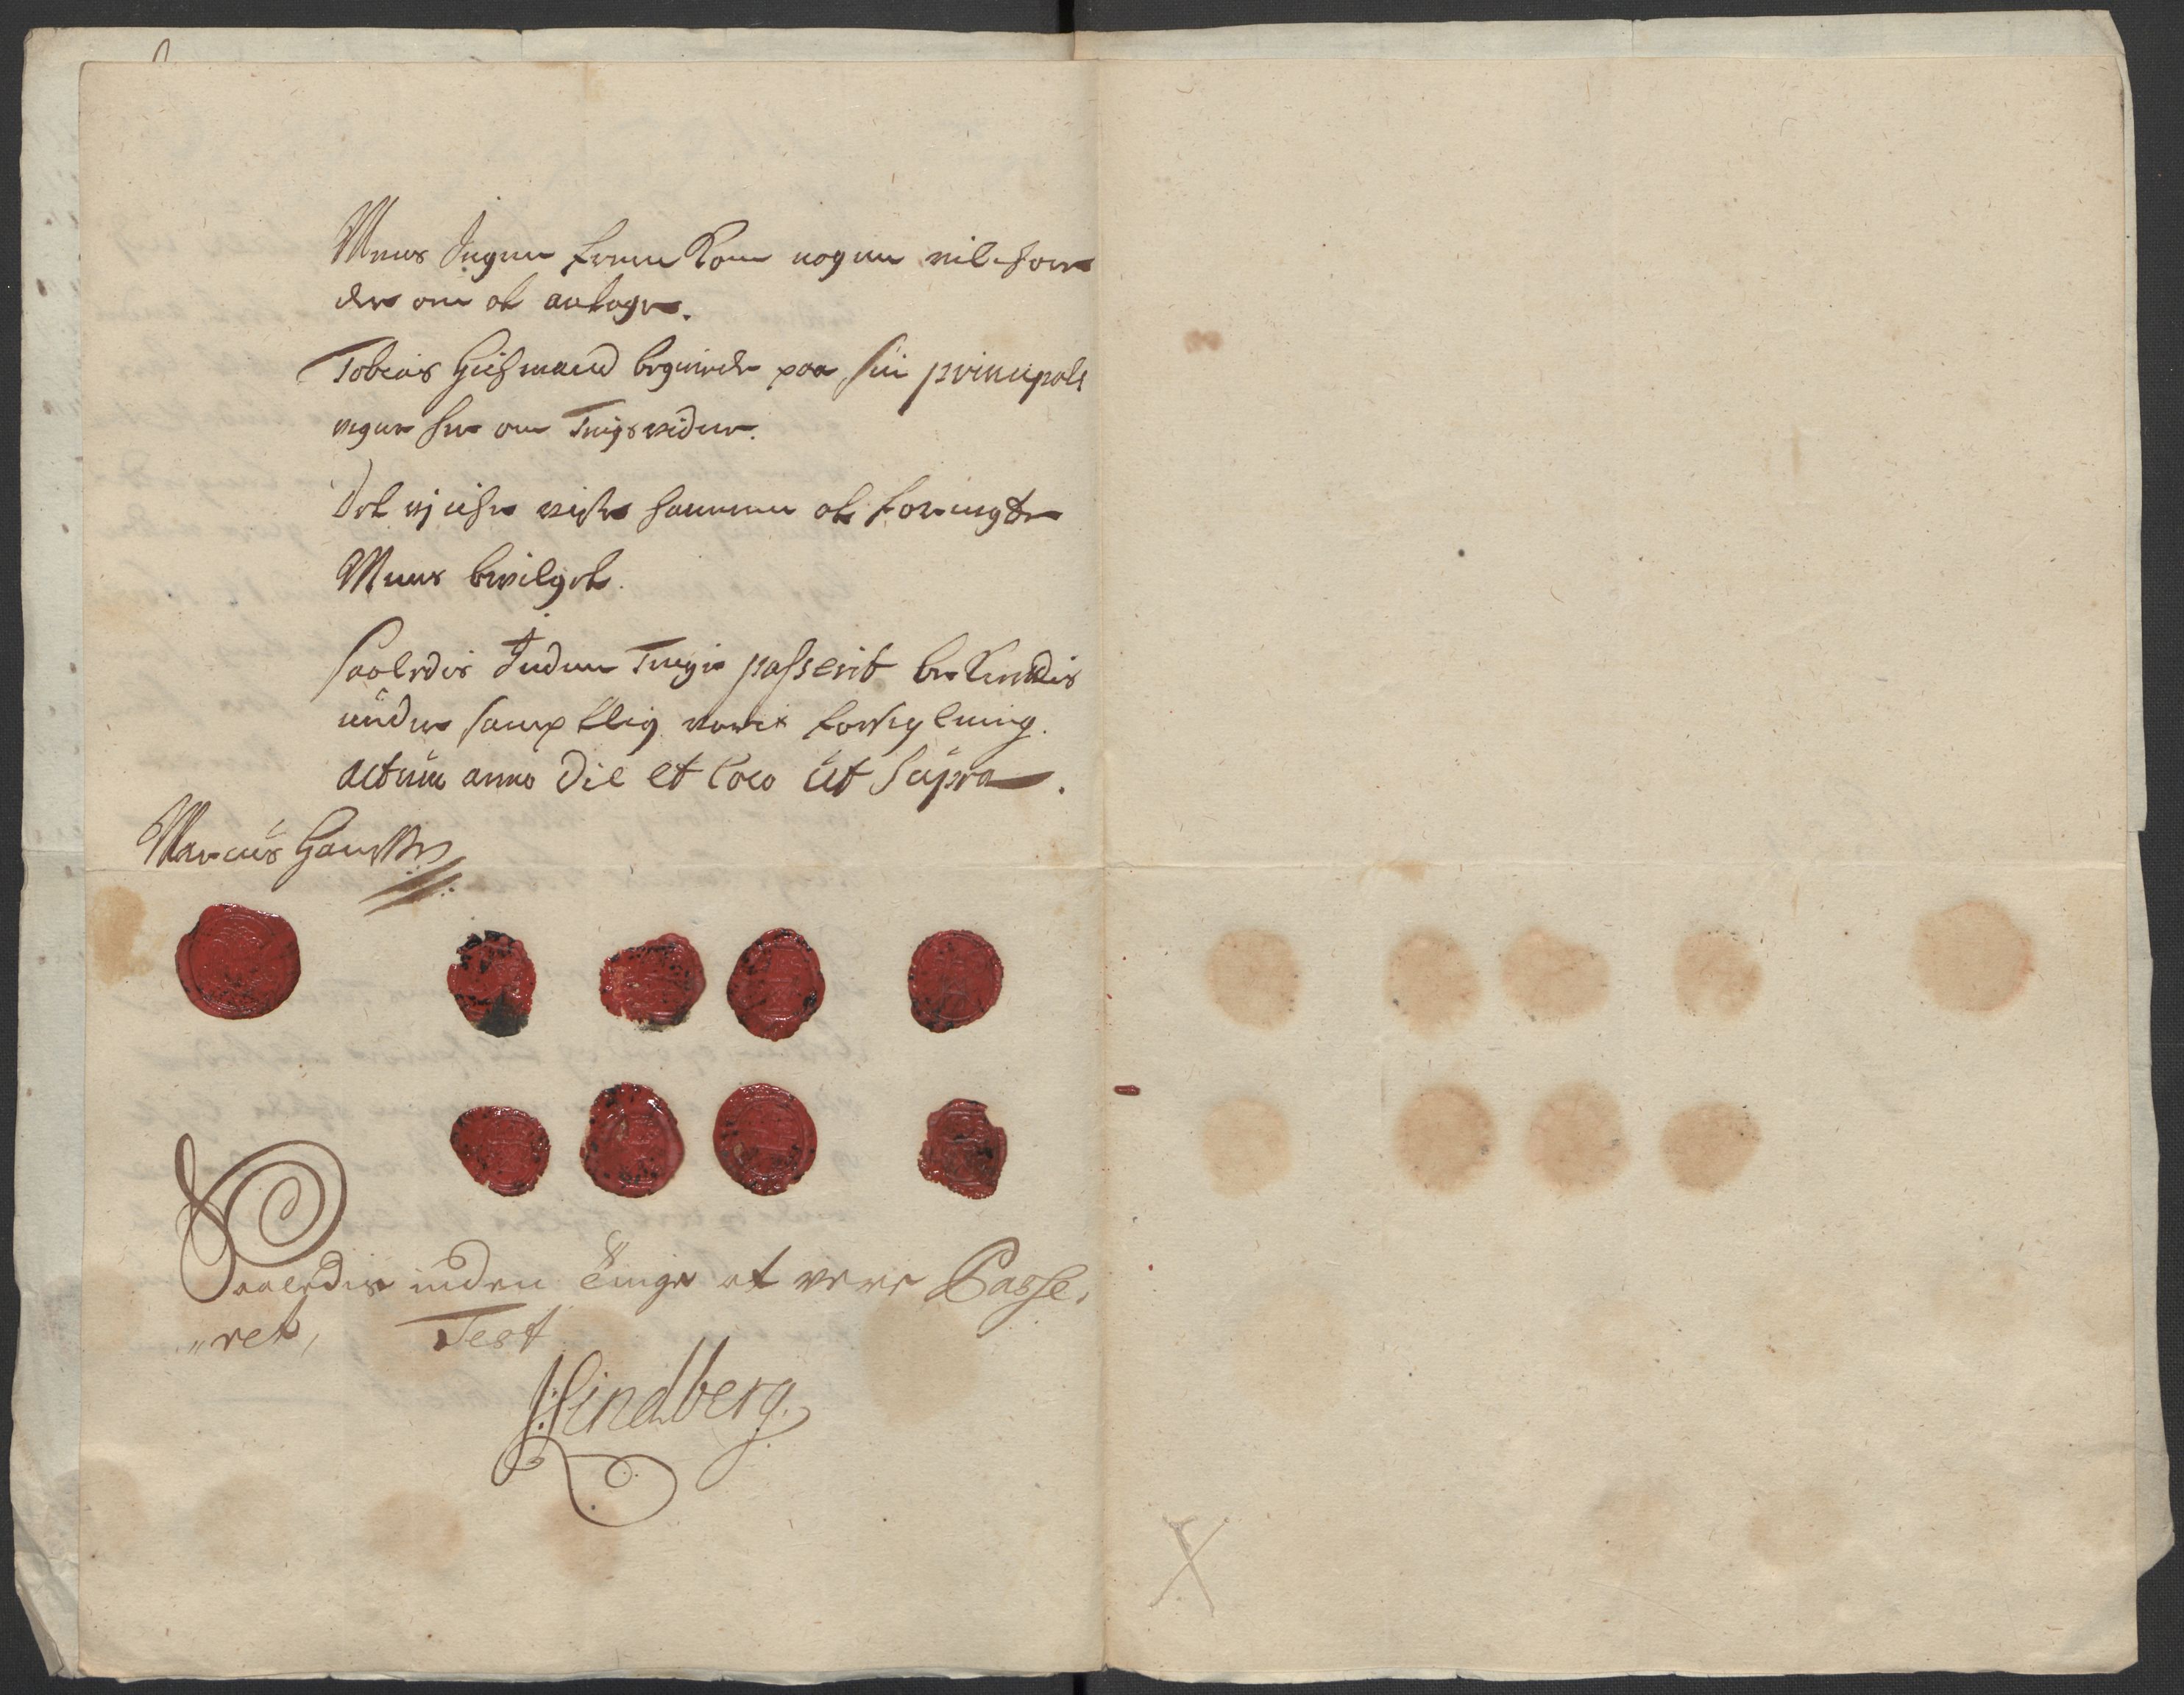 Mens Ingen frem Kom nogen vilchor
der om at antage.
Tobias Hiesmand begierede paa sin principals
vegne her om Tingsvidne.
Det ej icke viste sammen at forneigte
Mens bevilget.
Saaledis Inden Tinge passerit bekendis
under samptlig voris forseyling.
Actum anno Die et loco ut Supra.
Marcus Hanssen
Saaledis inden Tinge at vere Passe,
„ret, Test
J: Lindberg.